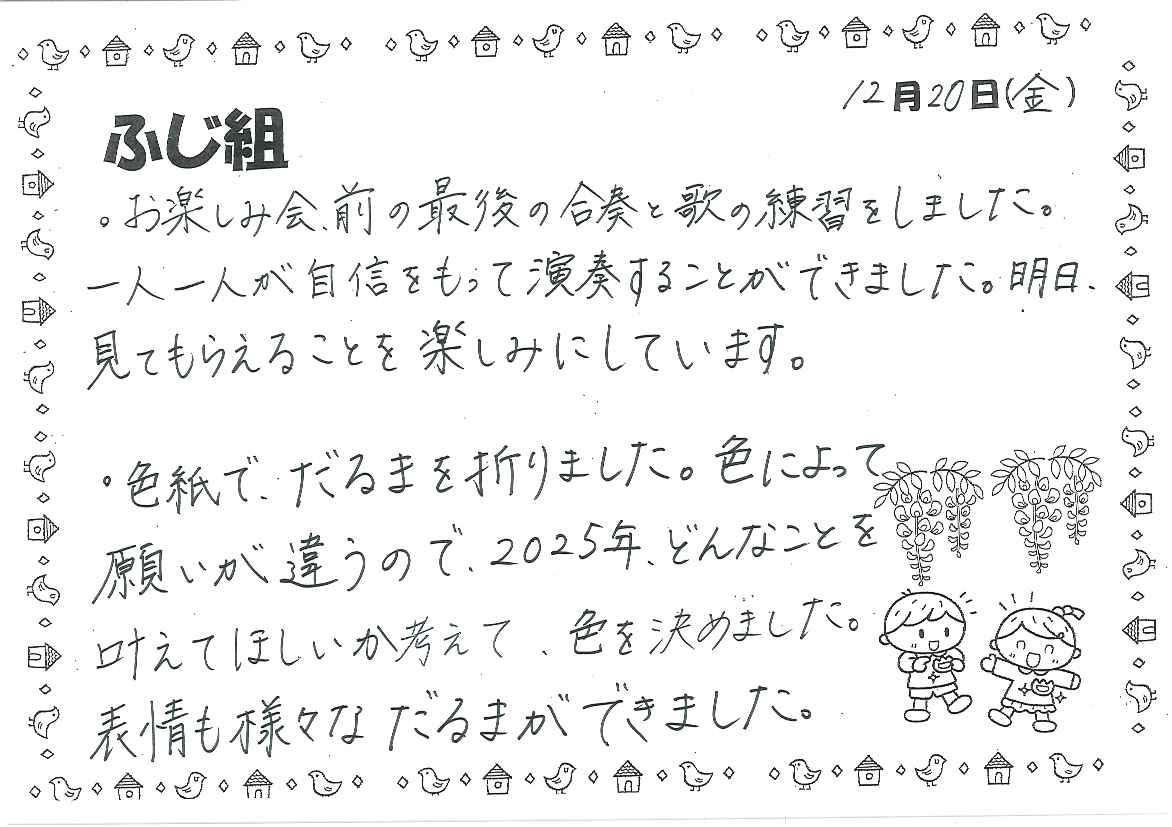 12月20日(金)
ふじ組
。お楽しみ会、前の最後の合奏と歌の練習をしました。
一人一人が自信をもって演奏することができました。明日、
見てもらえることを楽しみにしています。
。色紙で、だるまを折りました。色によって
願いが違うので、2025年、どんなことを
叶えてほしいか考えて、色を決めました。
表情も様々なだるまができました。